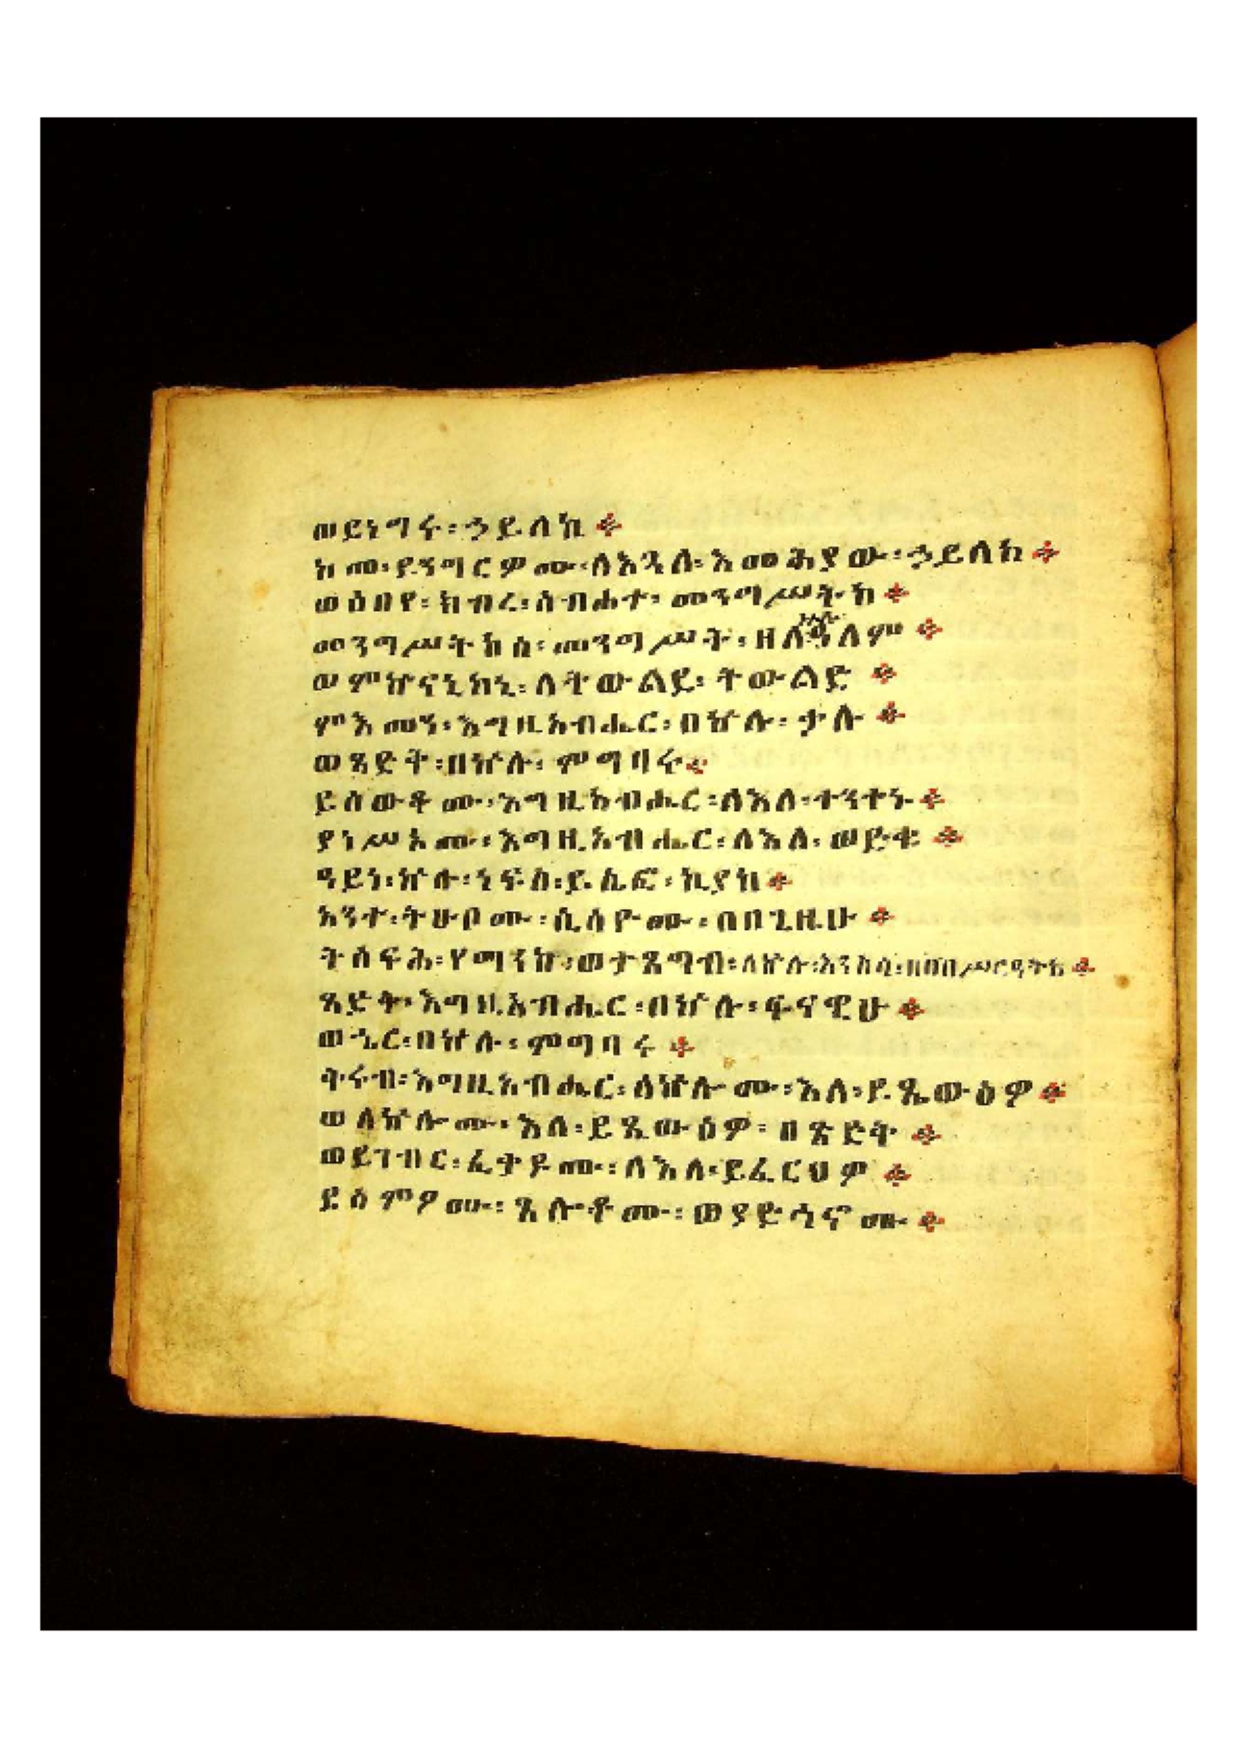 ወይነግሩ፡ኃይለከ፨
ከመ፡ይንግርዎሙ፡ለእጓለ፡እመሕያው፡ኃይለከ፨
ወዕበየ፡ክብረ፡ስብሐተ፡መንግሥትከ፨
መንግሥትከሰ፡መንግሥት፡ዘለዓለም፨
ወምኵናኒከኒ፡ለትውልደ፡ትውልድ፨
ምእመን፡እግዚአብሔር፡በኵሉ፡ቃሉ፨
ወጻድቅ፡በኵሉ፡ምግባሩ፨
ይሰውቆሙ፡እግዚአብሔር፡ለእለ፡ተንተኑ፨
ያነሥኦሙ፡እግዚአብሔር፡ለእለ፡ወድቁ፨
ዓይነ፡ኵሉ፡ነፍስ፡ይሴፎ፡ኪያከ፨
አንተ፡ትሁቦሙ፡ሲሳዮሙ፡በበጊዜሁ፨
ትሰፍሕ፡የማንከ፡ወታጸግብ፡ለኵሉ፡እንስሳ፡ዘበሥርዓትከ፨
ጻድቅ፡እግዚአብሔር፡በኵሉ፡ፍናዊሁ፨
ወኄር፡በኵሉ፡ምግባሩ፨
ቅሩብ፡እግዚአብሔር፡ለኵሎሙ፡እለ፡ይጼውዕዎ፨
ወለኵሎሙ፡እለ፡ይጼውዕዎ፡በጽድቅ፨
ወይገብር፡ፈቃዶሙ፡ለእለ፡ይፈርህዎ፨
ይሰምዖሙ፡ጸሎቶሙ፡ወያድኅኖሙ፨